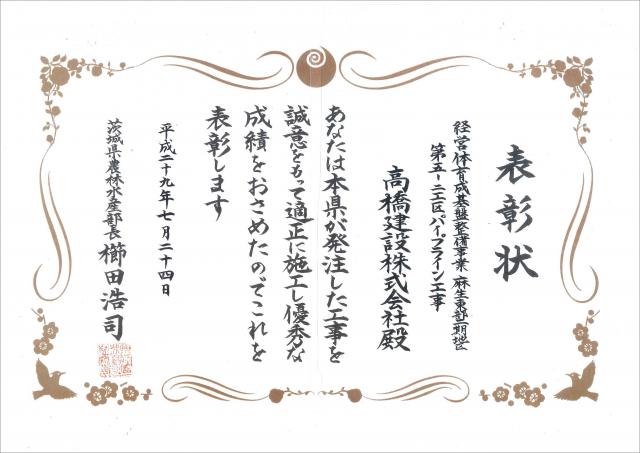 表彰状
経営体育成基盤整備事業 麻生東部二期地区
第五-二工区パイプライン工事
高橋建設株式会社殿
あなたは本県が発注した工事を
誠意をもって適正に施工し優秀な
成績をおさめたのでこれを
表彰します
平成二十九年七月二十四日
茨城県農林水産部長 櫛田浩司